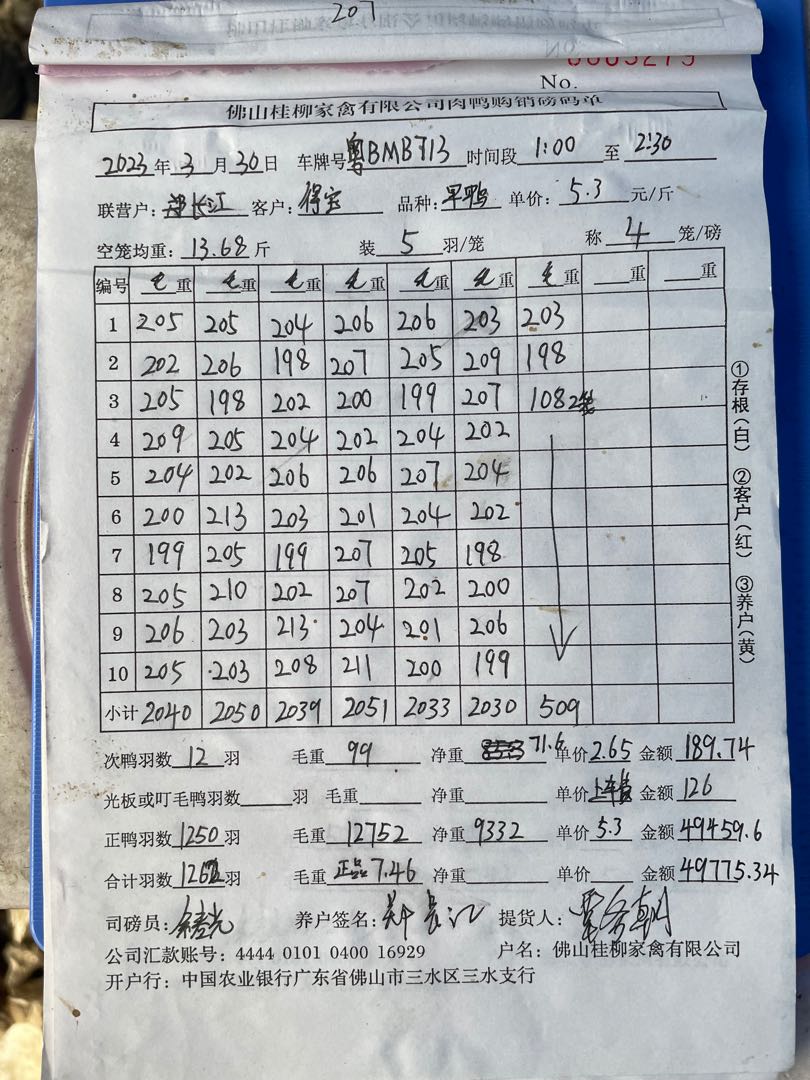 207
No.
佛山桂柳家禽有限公司肉鸭购销磅码单
2023年3月30日 车牌号粤BMB713 时间段1:00至2:30
联营户:郑长江 客户:得宝 品种:早鸭 单价:5.3元/斤
空笼均重:13.68斤 装5羽/笼 称4笼/磅
编号 毛重 毛重 毛重 毛重 毛重 毛重 毛重 重 重
1 205 205 204 206 206 203 203
2 202 206 198 207 205 209 198
3 205 198 202 200 199 207 108 2笼
4 209 205 204 202 204 202
5 204 202 206 206 207 204
6 200 213 203 201 204 202
7 199 205 199 207 205 198
8 205 210 202 207 202 200
9 206 203 213 204 201 206
10 205 203 208 211 200 199
小计 2040 2050 2039 2051 2033 2030 509
次鸭羽数12羽 毛重99 净重71.6 单价2.65 金额189.74
光板或叮毛鸭羽数 羽 毛重 净重 单价上车费 金额126
正鸭羽数1250羽 毛重12752 净重9332 单价5.3 金额49459.6
合计羽数1262羽 毛重正品7.46 净重 单价 金额49775.34
司磅员: 养户签名:郑长江 提货人:
公司汇款账号:4444 0101 0400 16929 户名:佛山桂柳家禽有限公司
开户行:中国农业银行广东省佛山市三水区三水支行
①存根(白) ②客户(红) ③养户(黄)